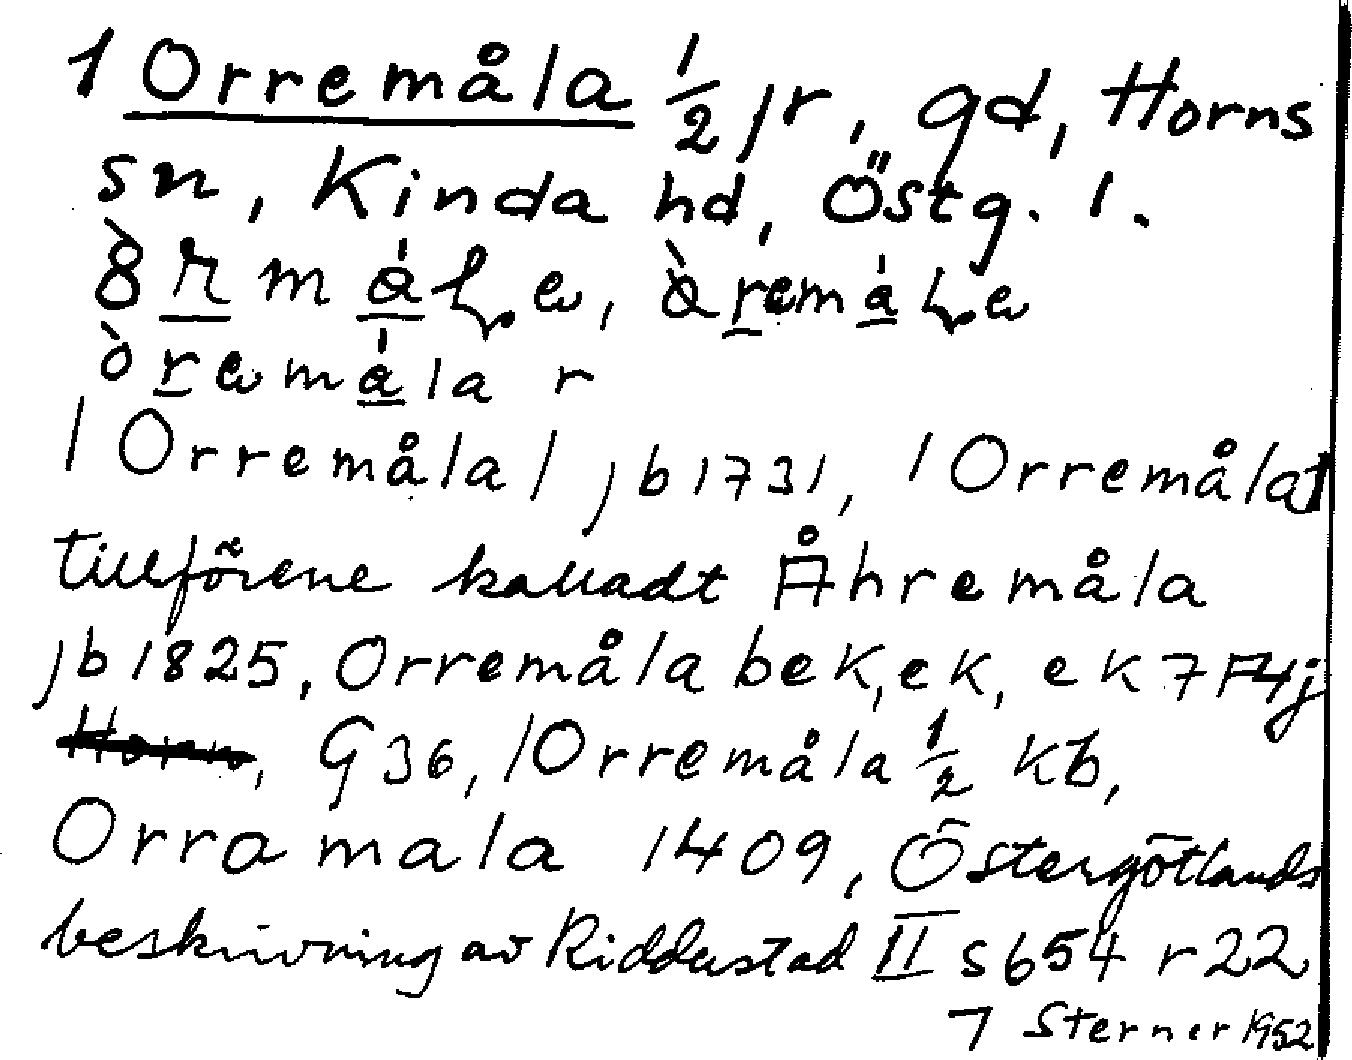 1 Orremåla 1/2 jr, gd, Horns
sn, Kinda hd, Östg. l.
òremála r
1 Orremåla / jb 1731, 1 Orremåla
tillförene kalladt Åhremåla
jb 1825, Orremåla bek, ek, ek 7F4j
G 36, 1 Orremåla 1/2 kb,
Orramala 1409, Östergötlands
beskrivning av Ridderstad II s 654 r 22
7 Sterner 1952